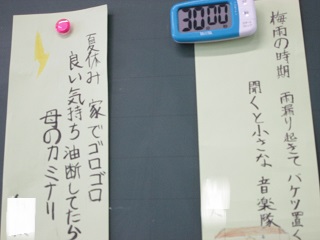 梅雨の時期 雨漏り起きて バケツ置く
聞くと小さな 音楽隊
夏休み 家でゴロゴロ
良い気持ち 油断してたら
母のカミナリ
30:00